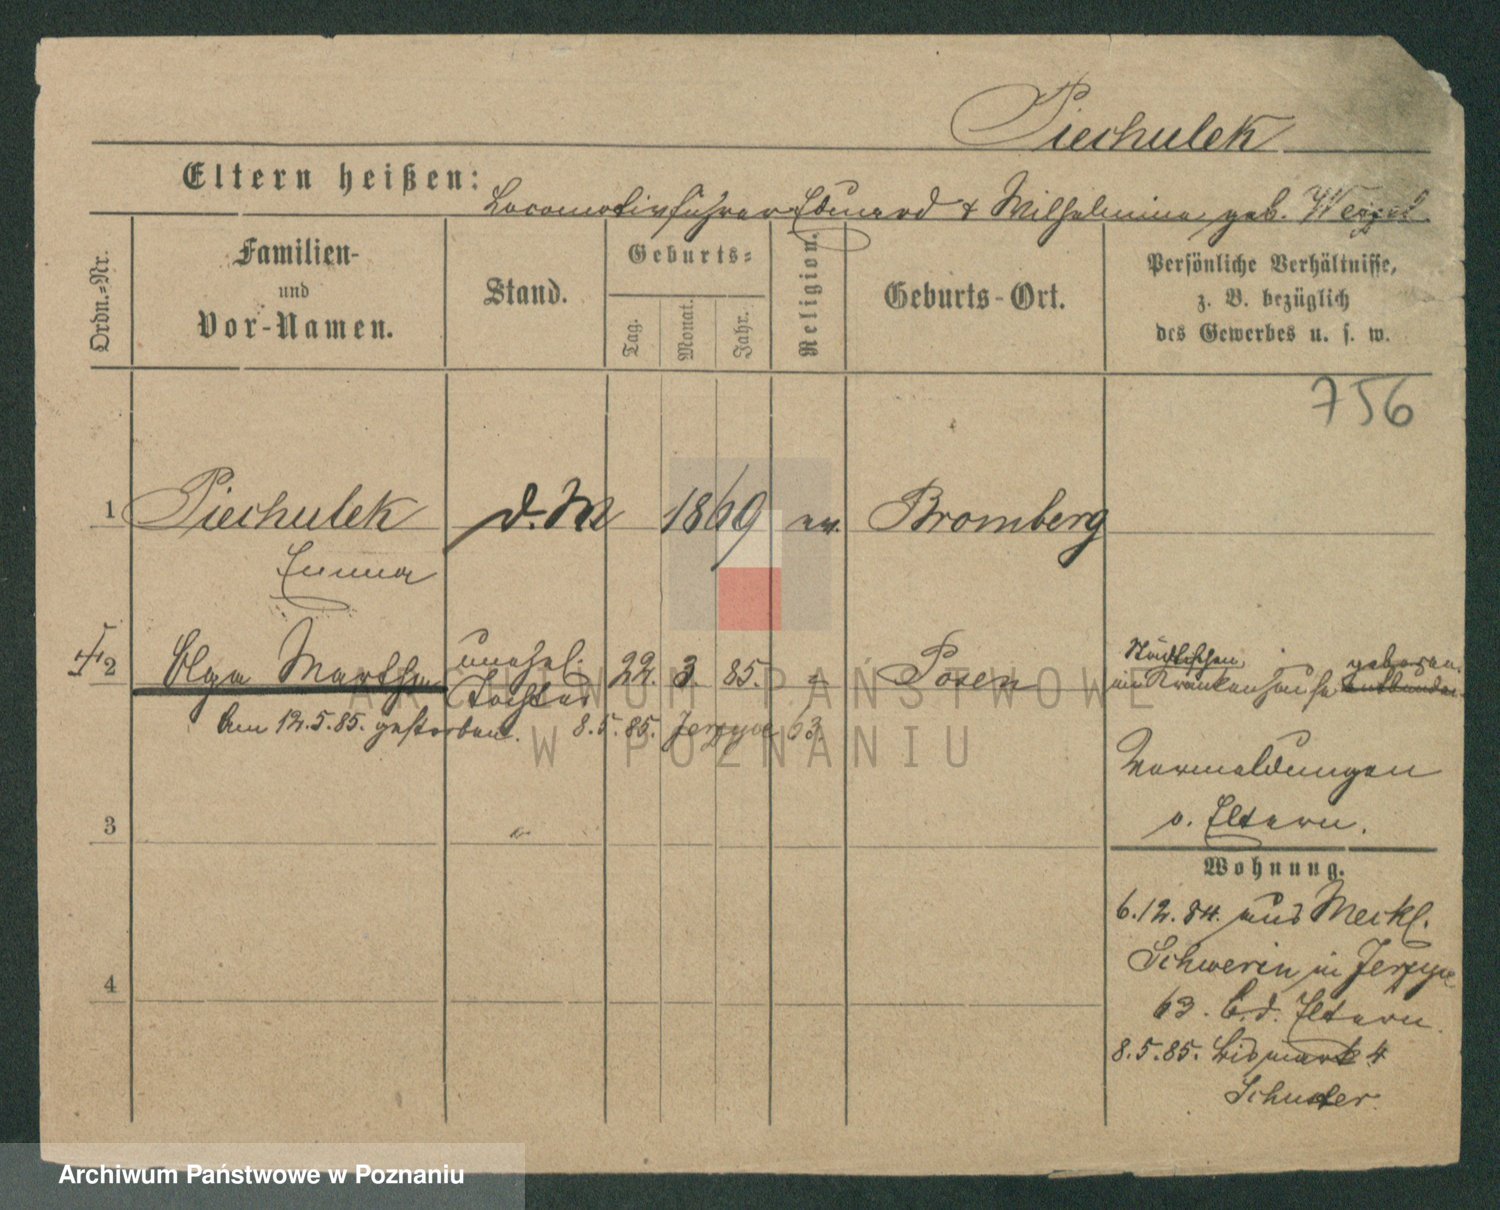 Piechulek
Eltern heißen: Locomotivführer Eduard & Wilhelmine geb.
Ordn.=Nr.
Familien-
und
Vor-Namen.
Stand.
Geburts=
Tag.
Monat.
Jahr.
Religion.
Geburts-Ort.
Persönliche Verhältnisse,
z. B. bezüglich
des Gewerbes u. s. w.
756
1 Piechulek d. M 1869 ev. Bromberg
Emma
2 Olga Martha unehel. 22. 3 85. " Posen Städtischen geboren.
Tochter im Krankenhause entbunden
Am 12.5.85. gestorben. 8.5.85. Jerzyce 63.
Vermeldungen
v. Eltern.
3
Wohnung.
6.12.84. aus Meckl.
Schwerin in Jerzyce
4
63. b. d. Eltern.
8.5.85. Bismark 4
Schuster
ARCHIWUM PAŃSTWOWE
W POZNANIU
Archiwum Państwowe w Poznaniu